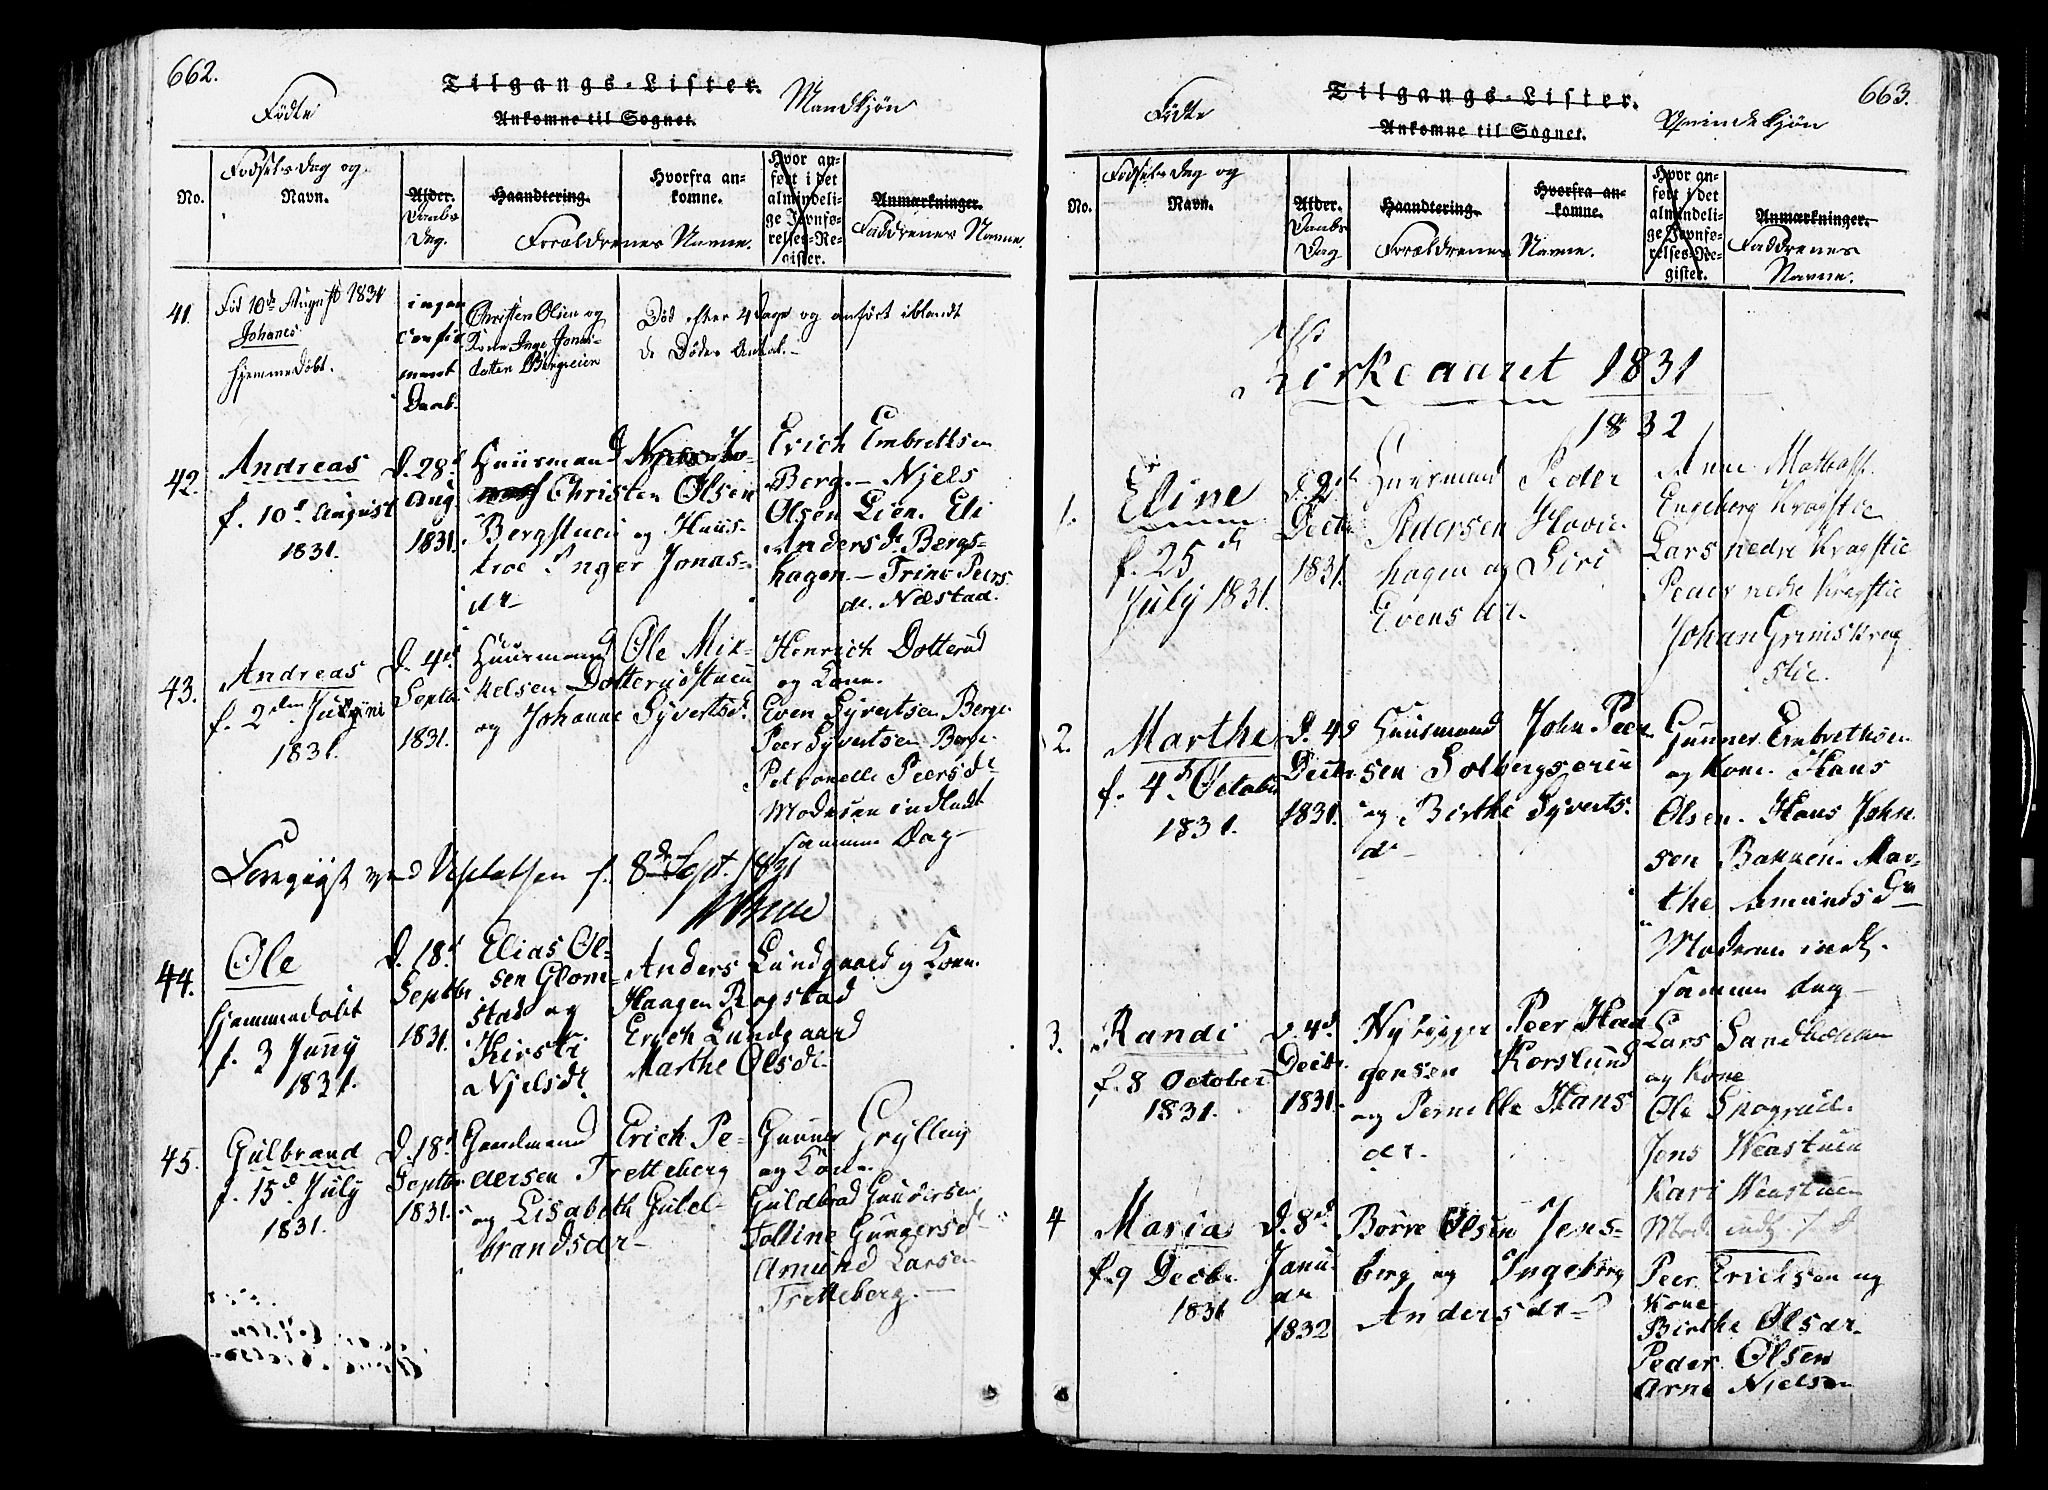 662.
Tilgangs-Lister.
Fødte
Mandkjøn
Ankomne til Sognet.
No.
Fødsels dag og
Navn.
Alder.
Daabs
Dag.
Haandtering.
Hvorfra an-
komne.
Forældrenes Navne.
Hvor an-
ført i det
almindeli-
ge Jevnfø-
relses-Re-
gister.
Anmærkninger.
Faddrenes Navne.
41.
Fød 10de August 1831
Johanes
hjemmedøbt.
ingen
Daab.
Christen Olsen og
Kone Inge Jonas-
datter
Død efter 4 Dage og anført iblandt
de Døde
42.
Andreas
f. 10d August
1831.
D. 28d
Aug
1831.
Huusmand
Christen Olsen
Bergstuen og Huus-
troe Inger Jonas-
dr
Erich Embretsen
Berg. - Njels
Olsen Lien. Eli
Andersdr Bergs-
hagen - Trine Peers
dr. Næstad.
43.
Andreas
f. 2den Juni
1831.
D. 4d
Septbr
1831.
Huusmand Ole Mik-
kelsen Dotterudstuen
og Johanne Syvertsdr
Henrich Dotterud
og Kone.
Even Syvertsen Berge
Peer Syvertsen Berge.
Petronelle Peersdr
Moderen indledt
samme Dag -
f. 8de Sept. 1831
44.
Ole
hjemmedøbt
f. 3 Juny
1831.
D. 18d
Septbr
1831.
Elias Ol-
sen Glom-
stad og
Kirsti
Njelsdr
Anders Lundgaard og Kone.
Haagen Rogstad
Erich Lundgaard
Marthe Olsdr.
45.
Gulbrand
f. 15d. July
1831.
D. 18d
Septbr
1831.
Gaardmand Erich Pe-
dersen Tretteberg
og Lisabeth Guld-
brandsdr
Gunner Grylling
og Kone
Guldbrad Gundersen
Amund Larsen
Tretteberg. -
663.
Tilgangs-Lister.
Fødte
Qvindekjøn
Ankomne til Sognet.
No.
Fødsels dag og
Navn.
Alder.
Daabs
Dag
Haandtering.
Hvorfra an-
komne.
Forældrenes Navne.
Hvor an-
ført i det
almindeli-
ge Jevnfø-
relses-Re-
gister.
Anmærkninger.
Faddrenes
Navne.
Kirkeaaret 1831
1832
1.
Eline
f. 25d
July 1831.
d. 2d
Decbr
1831.
Huusmand Peder
Pedersen Hovie-
hagen og Siri
Evensdr.
Anne
Engeborg Kragstie
Lars nedre Kragstie
Peder nedre Kragstie
Johan Grimskrag
stie.
2.
Marthe
f. 4d October
1831.
D. 4d
Decbr
1831.
Huusmand John Peer
sen Solbergseiu
og Birthe Syverts
dr
Gunner Embrethsen
og Kone. Hans
Olsen. Hans John
sen Bakken. Mar-
the Amundsdr
Moderen indl.
samme dag -
3.
Randi
f. 8 October
1831.
D. 4d.
Decbr
1831.
Nybygger Peer Haa
gensen Korslund
og Pernille Hans
dr.
Lars Sandbakken
og Kone
Ole Skogrud.
Jens Neastuen
Kari Neastuen
4
Maria
f. 9 Decbr
1831
D. 8d.
Janu
ar
1832
Børre Olsen Jens-
berg og Ingeborg
Andersdr
Peer Ericksen og
Kone
Birthe Olsdr.
Peder Olsen
Arne Nielsen